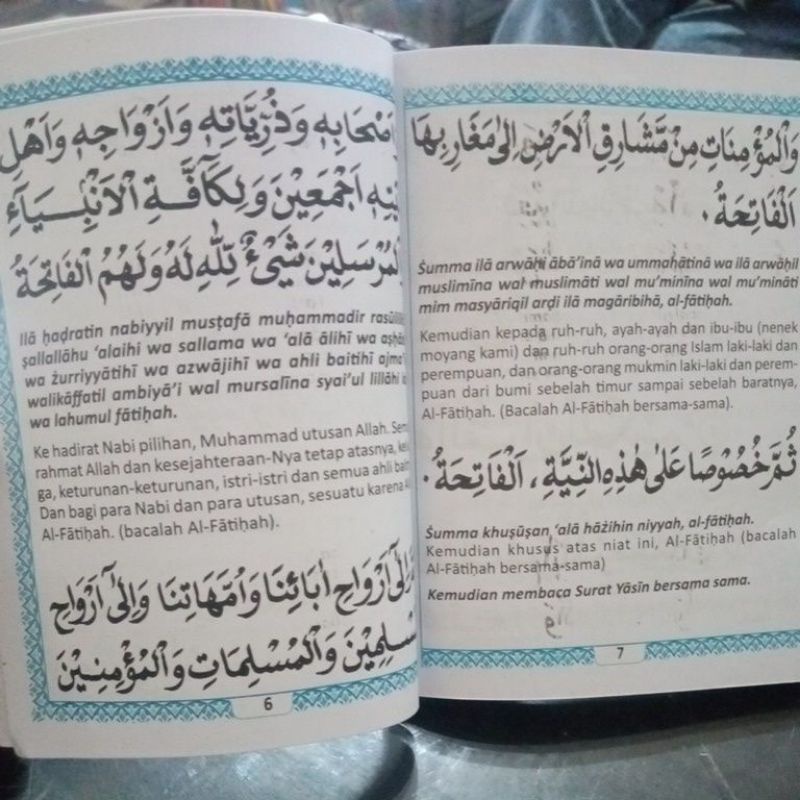 وَاَصْحَابِهٖ وَذُرِّيَّاتِهٖ وَاَزْوَاجِهٖ وَاَهْلِ
بَيْتِهٖ اَجْمَعِيْنَ وَلِكَآفَّةِ الْاَنْبِيَآءِ
وَالْمُرْسَلِيْنَ شَيْءٌ لِلّٰهِ لَهُ وَلَهُمُ الْفَاتِحَةُ
Ilā ḥaḍratin nabiyyil muṣṭafā muḥammadir rasūlillāh
ṣallallāhu 'alaihi wa sallama wa 'alā ālihī wa aṣḥā
wa żurriyyātihī wa azwājihī wa ahli baitihī ajma'
walikāffatil ambiyā'i wal mursalīna syai'ul lillāhi
wa lahumul fātiḥah.
Ke hadirat Nabi pilihan, Muhammad utusan Allah. Sem
rahmat Allah dan kesejahteraan-Nya tetap atasnya, kel
ga, keturunan-keturunan, istri-istri dan semua ahli bait
Dan bagi para Nabi dan para utusan, sesuatu karena A
Al-Fātiḥah. (bacalah Al-Fātiḥah).
اِلٰٓى اَرْوَاحِ اٰبَائِنَا وَاُمَّهَاتِنَا وَاِلٰٓى اَرْوَاحِ
الْمُسْلِمِيْنَ وَالْمُسْلِمَاتِ وَالْمُؤْمِنِيْنَ
6
وَالْمُؤْمِنَاتِ مِنْ مَّشَارِقِ الْاَرْضِ اِلٰى مَغَارِبِهَا
اَلْفَاتِحَةُ ۰
Ṡumma ilā arwāḥi ābā'inā wa ummahātinā wa ilā arwāḥil
muslimīna wal muslimāti wal mu'minīna wal mu'mināti
mim masyāriqil arḍi ilā magāribihā, al-fātiḥah.
Kemudian kepada ruh-ruh, ayah-ayah dan ibu-ibu (nenek
moyang kami) dan ruh-ruh orang-orang Islam laki-laki dan
perempuan, dan orang-orang mukmin laki-laki dan perem-
puan dari bumi sebelah timur sampai sebelah baratnya,
Al-Fātiḥah. (Bacalah Al-Fātiḥah bersama-sama).
ثُمَّ خُصُوْصًا عَلٰى هٰذِهِ النِّيَّةِ ، اَلْفَاتِحَةُ ۰
Ṡumma khuṣūṣan 'alā hāżihin niyyah, al-fātiḥah.
Kemudian khusus atas niat ini, Al-Fātiḥah (bacalah
Al-Fātiḥah bersama-sama)
Kemudian membaca Surat Yāsīn bersama sama.
7